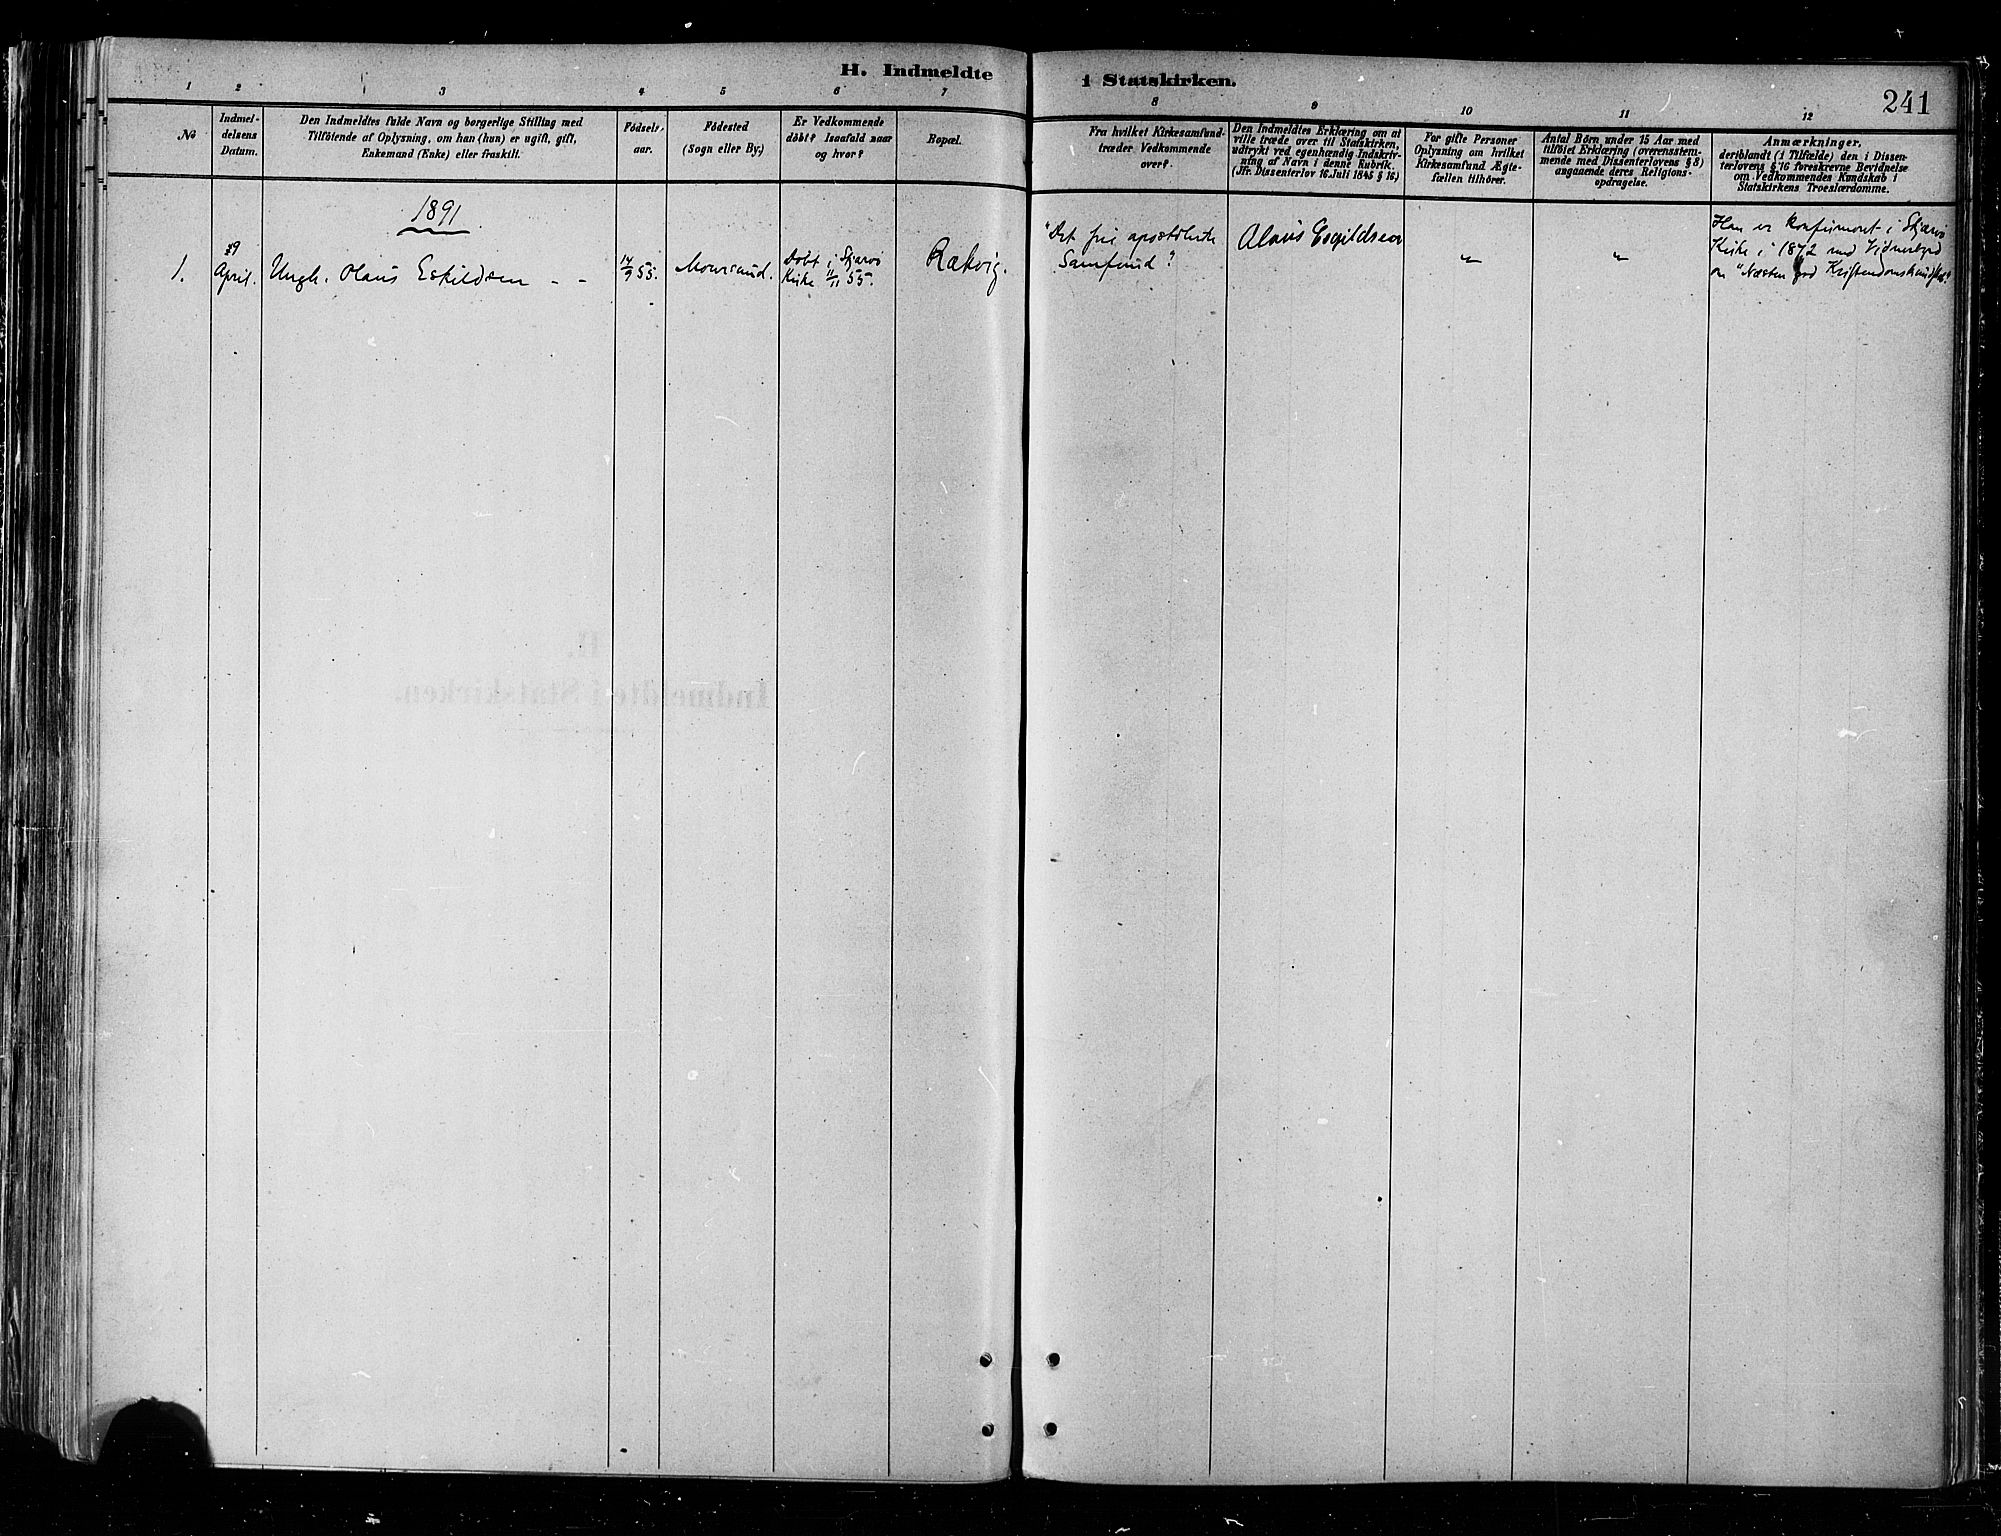 H. Indmeldte i Statskirken.
241
1 2 3 4 5 6 7 8 9 10 11 12
No
Indmel-
delsens
Datum.
Den Indmeldtes fulde Navn og borgerlige Stilling med
Tilföiende af Oplysning, om han (hun) er ugift, gift,
Enkemand (Enke) eller fraskilt.
Födsels-
aar.
Födested
(Sogn eller By.)
Er Vedkommende
döbt? Isaafald naar
og hvor?
Bopæl.
Fra hvilket Kirkesamfund-
træder Vedkommende
over?
Den Indmeldtes Erklæring om at
ville træde over til Statskirken,
udtrykt ved egenhændig Indskriv-
ning af Navn i denne Rubrik.
(Jfr. Dissenterlov 16 Juli 1845 § 16.)
For gifte Personer
Oplysning om hvilket
Kirkesamfund Ægte-
fællen tilhörer.
Antal Börn under 15 Aar med
tilföiet Erklæring (overensstem-
mende med Dissenterlovens § 8)
angaaende deres Religions-
opdragelse.
Anmærkninger,
deriblandt (i Tilfælde) den i Dissen-
terlovens § 16 foreskrevne Bevidnelse
om Vedkommendes Kundskab i
Statskirkens Troeslærdomme.
1891
1.
29
April.
Ungk. Olaus Eskildsen - -
14/9 55.
Maursund.
Döbt i Skjærvö
Kirke 11/11 55.
Rakvig.
"Det frie apostoliske
Samfund?
Olaus Esgildsen
"
"
Han er konfirmeret i Skjærvö
Kirke i 1872 med Vidnesbyrd
om "Næsten god Kristendomskundskab".
H.
Indmeldte i Statskirken.